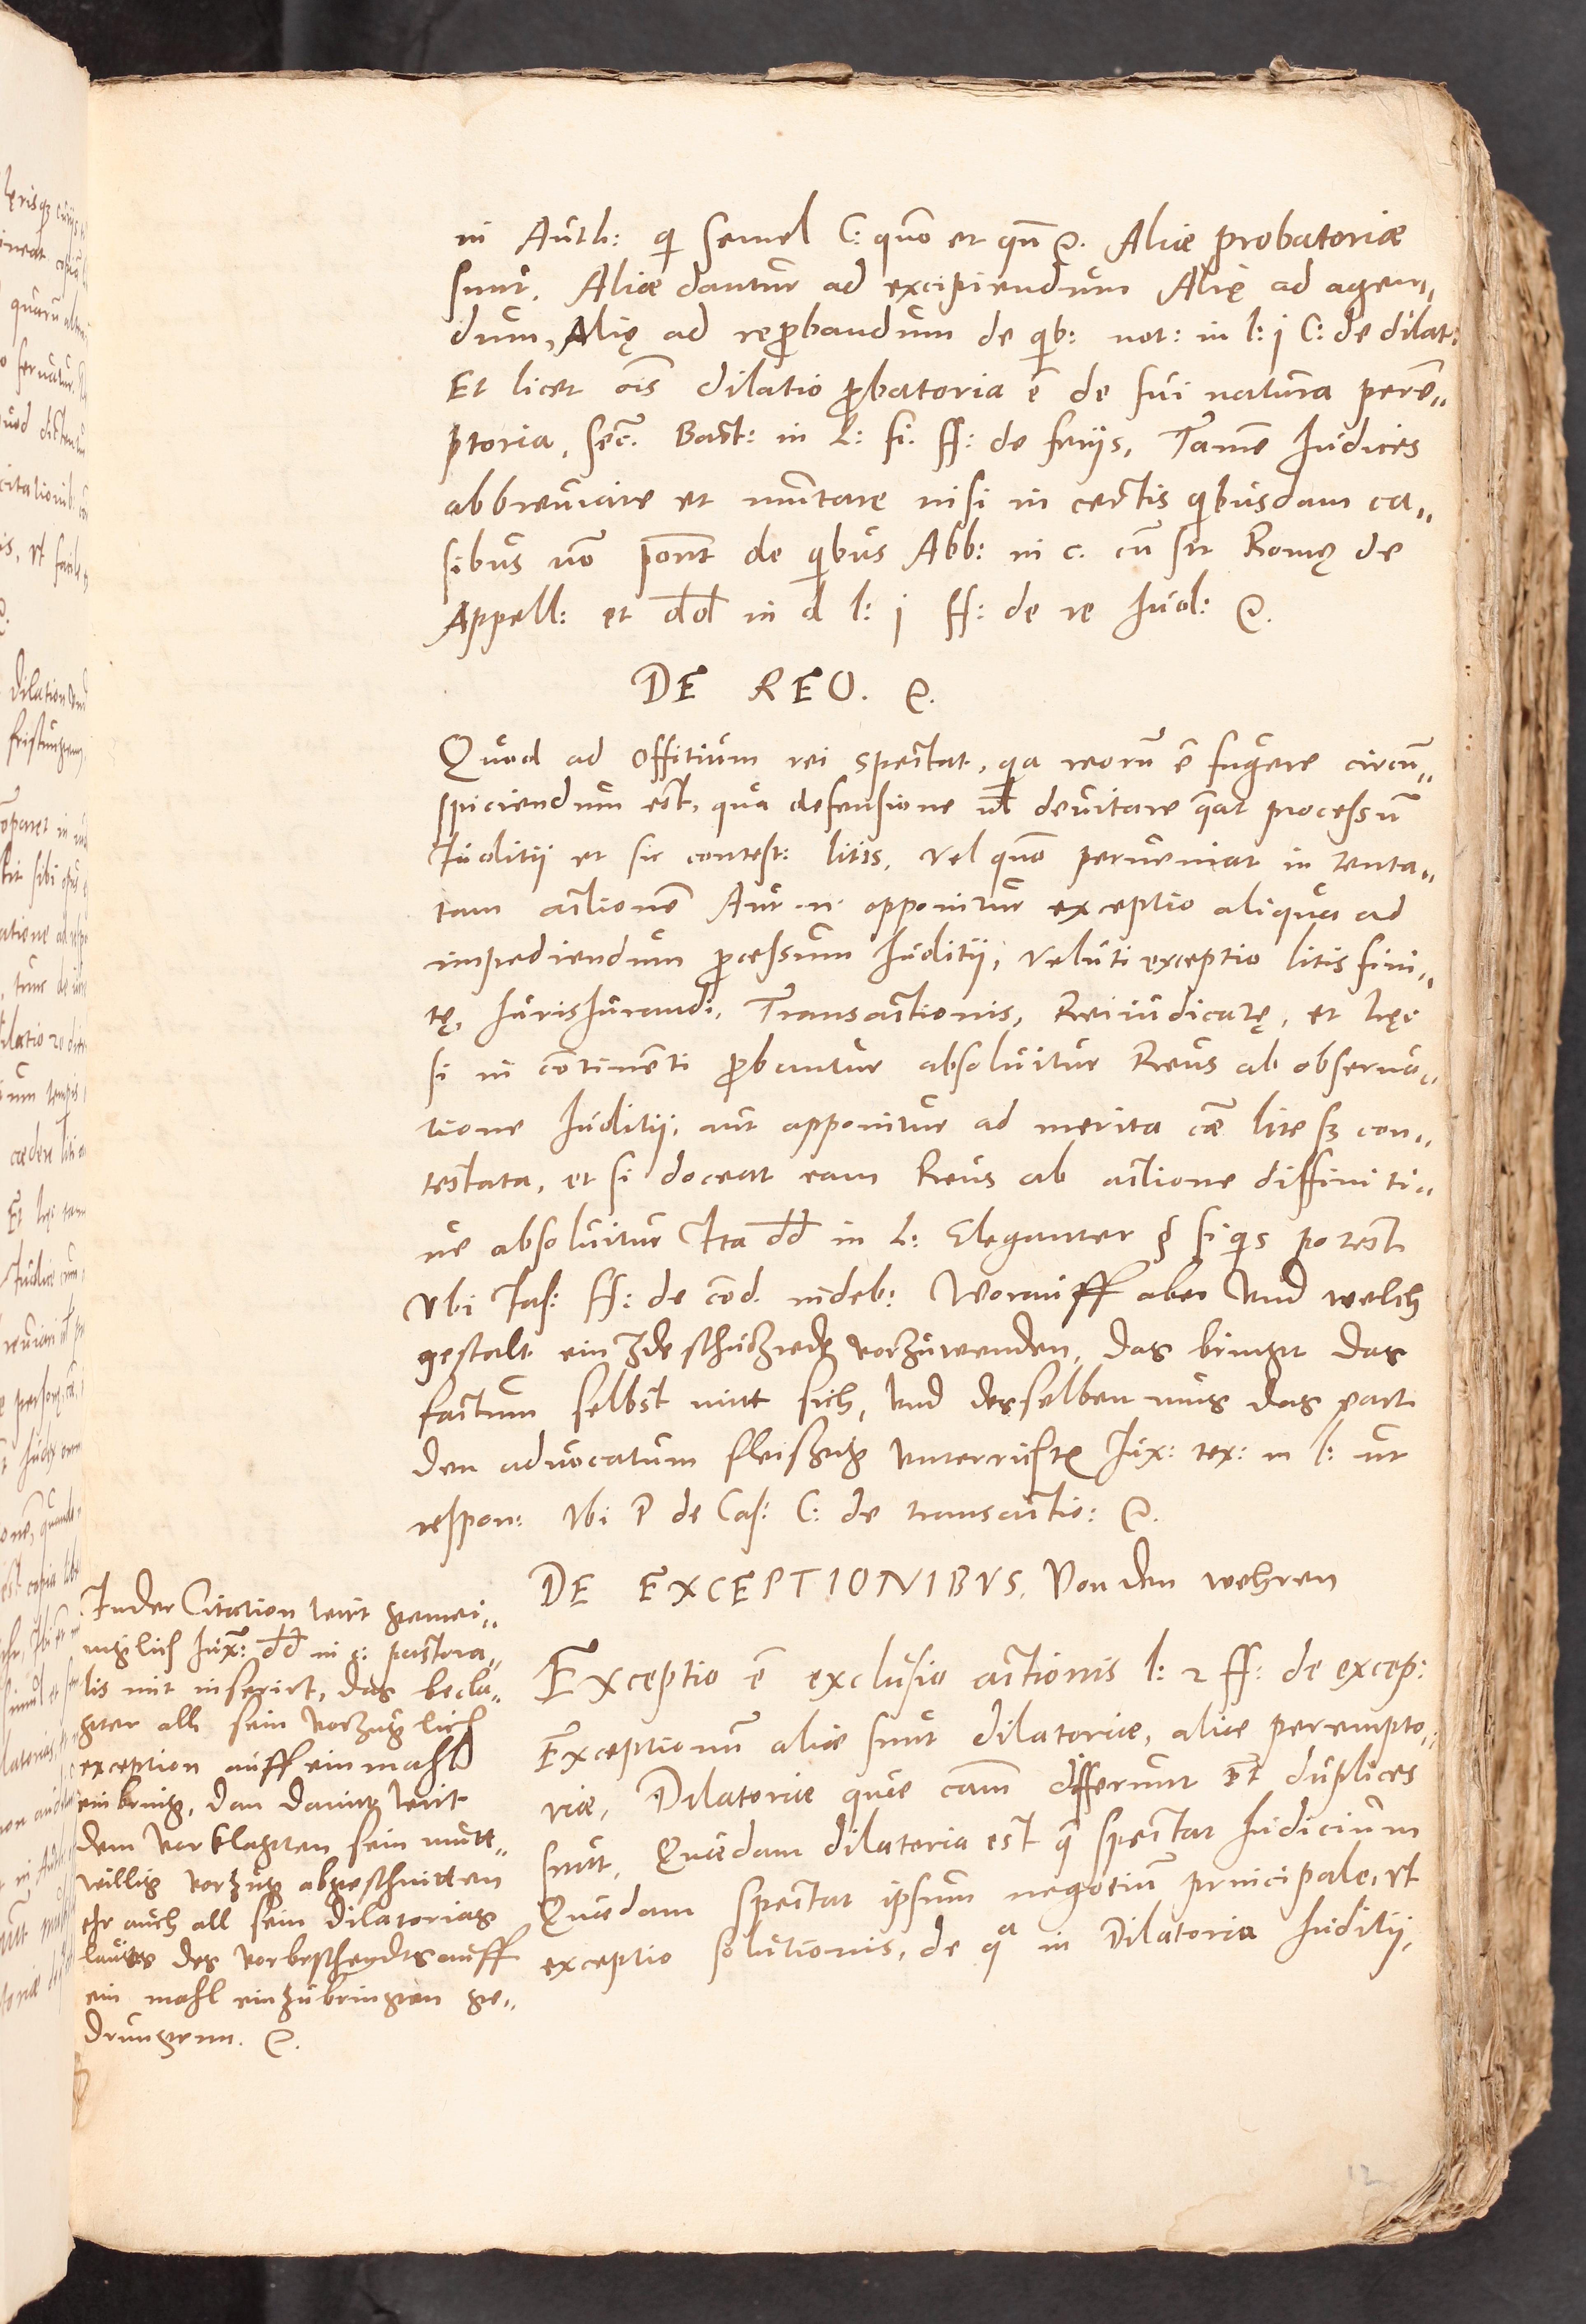 in Auth: qi semel C: quō et qn̄ &c. Aliae probatoriae
sunt. Aliae dantur ad excipiendum Alię ad agen„
dum, Alię ad reprobandum de qib: not: in l: j C: de dilat:
Et licet ois dilatio probatoria ē de sui natura perē„
ptoria, sec̄. Bart: in L: fi. ff: de ferijs, Tamē Iudices
abbreuiare et mutare nisi in certis qibusdam ca„
sibus nō pōnt de qibus Abb: in c. cū sit Romę de
Appell: et dd in d l: j ff: de re Iud: &c.
DE REO. &c.
Quod ad offitium rei spectat, qia reorū ē fugere circū„
spiciendum est, qua defensione ul deuitare qeat processū
Iuditii et sic contest: litis, vel quō perueniat in tenta„
tam actionē Aut .n. opponitur exceptio aliqua ad
impediendum processum Iuditii, veluti exceptio litis fini„
tę, Iurisiurandi, Transactionis, Rei iudicatę, et hęc
si in cōtinenti probantur absoluitur Reus ab obserua„
tione Iuditii, aut apponitur ad merita cāe lite sz con„
testata, et si doceat eam Reus ab actione diffiniti„
ue absoluitur Ita dd in L: Eleganter § si qis potest
Vbi Jas: ff: de cōd. indeb: Worauff aber vnd welch
gestalt ein Jde schutzrede vorzuwenden, das bringet das
factum selbst mitt sich, vnd desselben mus das part
den aduocatum fleissigk vnterrichtē Iux: tex: in l: ut
respon: Vbi P de Cas: C: de transactio: &c.
DE EXCEPTIONIBVS. Von den wehren
Exceptio ē exclusio actionis l: 2 ff: de excep:
Exceptionū aliae sunt dilatoriae, aliae perempto„
riae, Dilatoriae quae cam̄ differunt duplices
sunt. Quaedam dilatoria est q̄ spectat Iudicium
Quaedam spectat ipsum negotiū principale, vt
exceptio solutionis, de qa in Dilatoria Iuditij,
In der Citation wirt gemei„
niglich Iux: dd in c: pastora„
lis mit inserirt, das becla„
gter all sein vorzuglich
exception auff ein mahl
einbring, dan damit wirt
dem vorklagten sein mutt„
willig vorzug abgeschnitten
ehr auch all sein dilatorias
lauts des vorbeschendts auff
ein mahl einzubringen ge„
drungenn. &c.
12